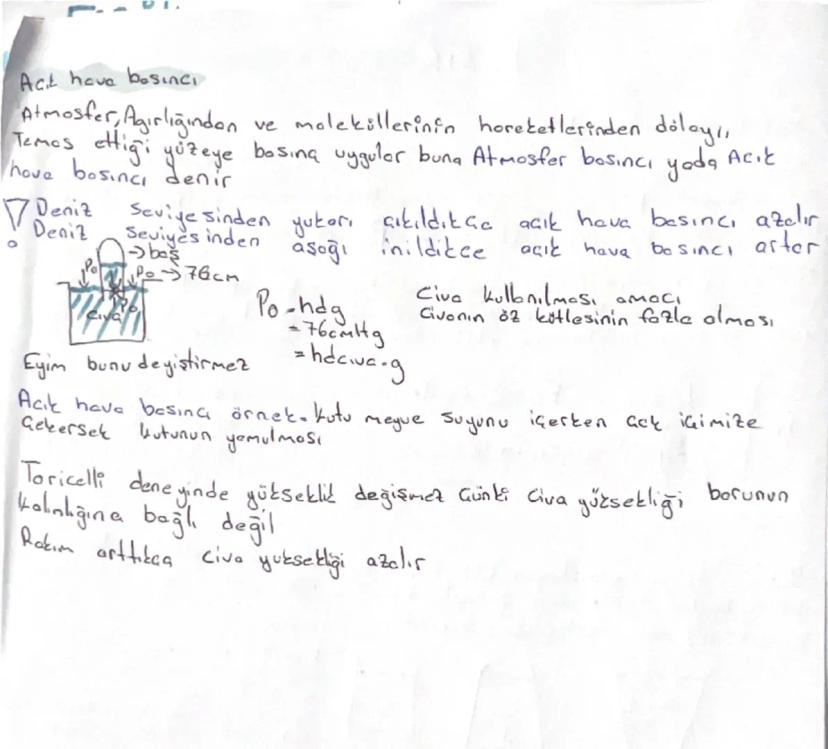 Acık hava basıncı
Atmosfer, Agırlığından ve moleküllerinin hareketlerinden dolayı,
Temas ettiği yüzeye basınç uygular buna Atmosfer basıncı yada Acık
hava basıncı denir
! Deniz Seviyesinden yukarı çıkıldıkça açık hava basıncı azalır
Deniz seviyesinden aşağı inildikce açık hava basıncı artar
→ boş
Po Po → 76cm
Civa
Po = hdg
= 76cmHg
= hdcıva.g
Civa kullanılması amacı
Civanın öz kütlesinin fazla olması
Eyim bunu deyiştirmez
Acık hava basıncı örnek. Kutu meyve suyunu içerken çok içimize
Çekersek kutunun yamulması
Toricelli deneyinde yükseklik değişmez Çünki Civa yüksekliği borunun
kalınlığına bağlı değil
Rakım arttıkca civa yuksekliği azalır